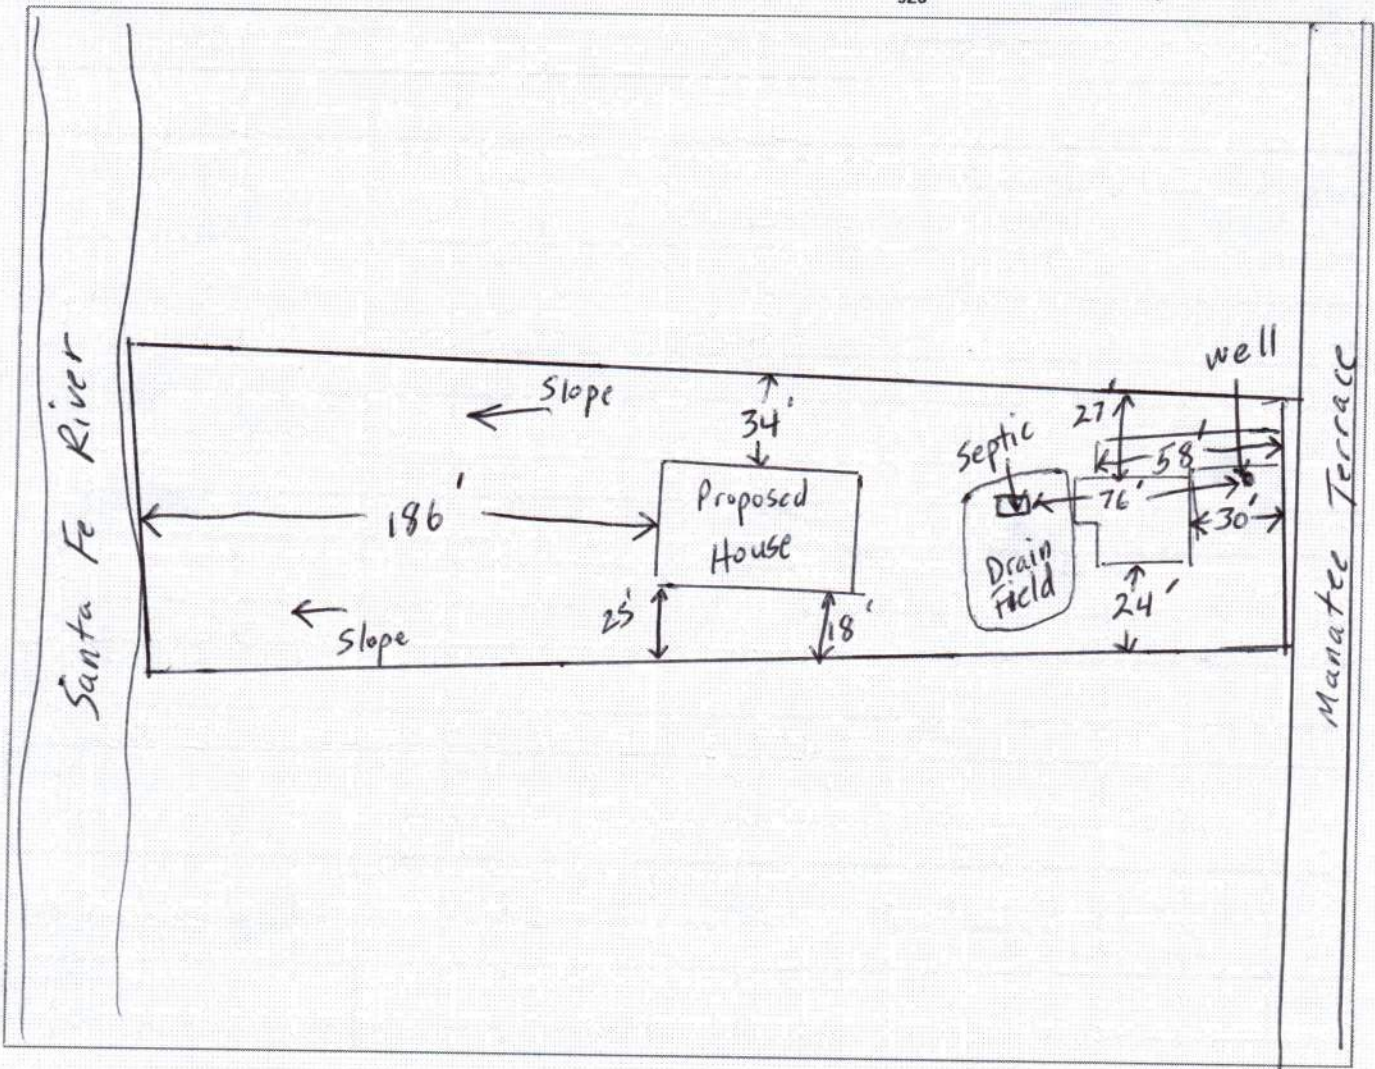 Santa Fe River
Slope
186'
Slope
34'
Proposed
House
25'
18'
Septic
Drain
Field
27'
58'
76'
30'
24'
well
Manatee Terrace